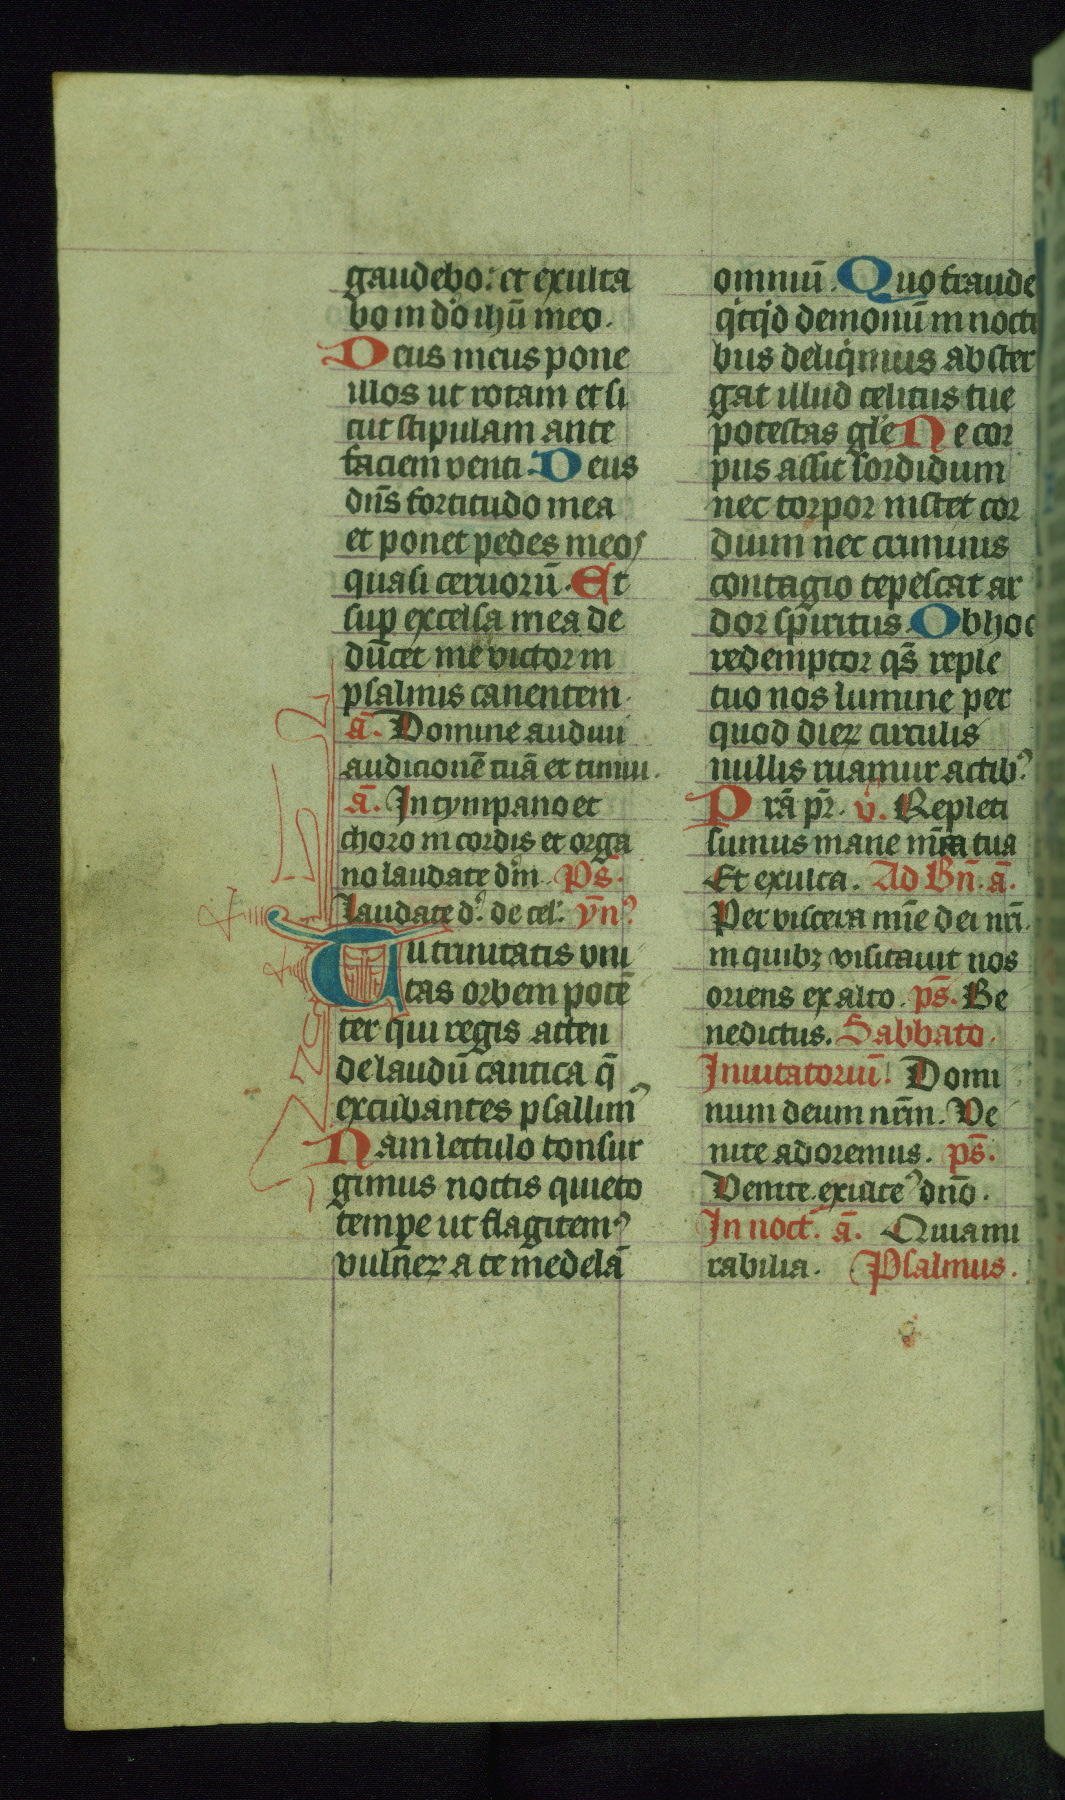 gaudebo: et exulta
bo in do ihū meo.
Deus meus pone
illos ut rotam et si
cut stipulam ante
faciem venti. Deus
dn̄s fortitudo mea
et ponet pedes meos
quasi ceruorū. Et
sup excelsa mea de
ducet me victor in
psalmis canentem.
a̅. Domine audiui
audicionē tuā et timui.
a̅. In tympano et
choro in cordis et orga
no laudate dm̄. Ps̄.
Laudate d. de cel. yn̄
Tu trinitatis vni
tas orbem potē
ter qui regis atten
de laudū cantica q̄
excubantes psallim
Nam lectulo consur
gimus noctis quieto
tempe ut flagitem
vulneꝝ a te medelā
omniū. Quo fraude
qicqid demonū in nocti
bus deliqimus abster
gat illud celitus tue
potestas gle Ne cor
pus assit sordidum
nec torpor instet cor
dium nec criminis
contagio tepescat ar
dor spiritus. Ob hoc
redemptor qs̄ reple
tuo nos lumine per
quod dieꝝ circulis
nullis ruamur actib
Prā pr̄. v. Repleti
sumus mane mīa tua
Et exulta. Ad Bn̄. a̅.
Per viscera mīe dei nr̄i
in quibꝫ visitauit nos
oriens ex alto. ps̄. Be
nedictus. Sabbato.
Inuitatoriū. Domi
num deum nr̄m. Ve
nite adoremus. ps̄.
Venite exulte dn̄o.
In noct. a̅. Quia mi
rabilia. Psalmus.